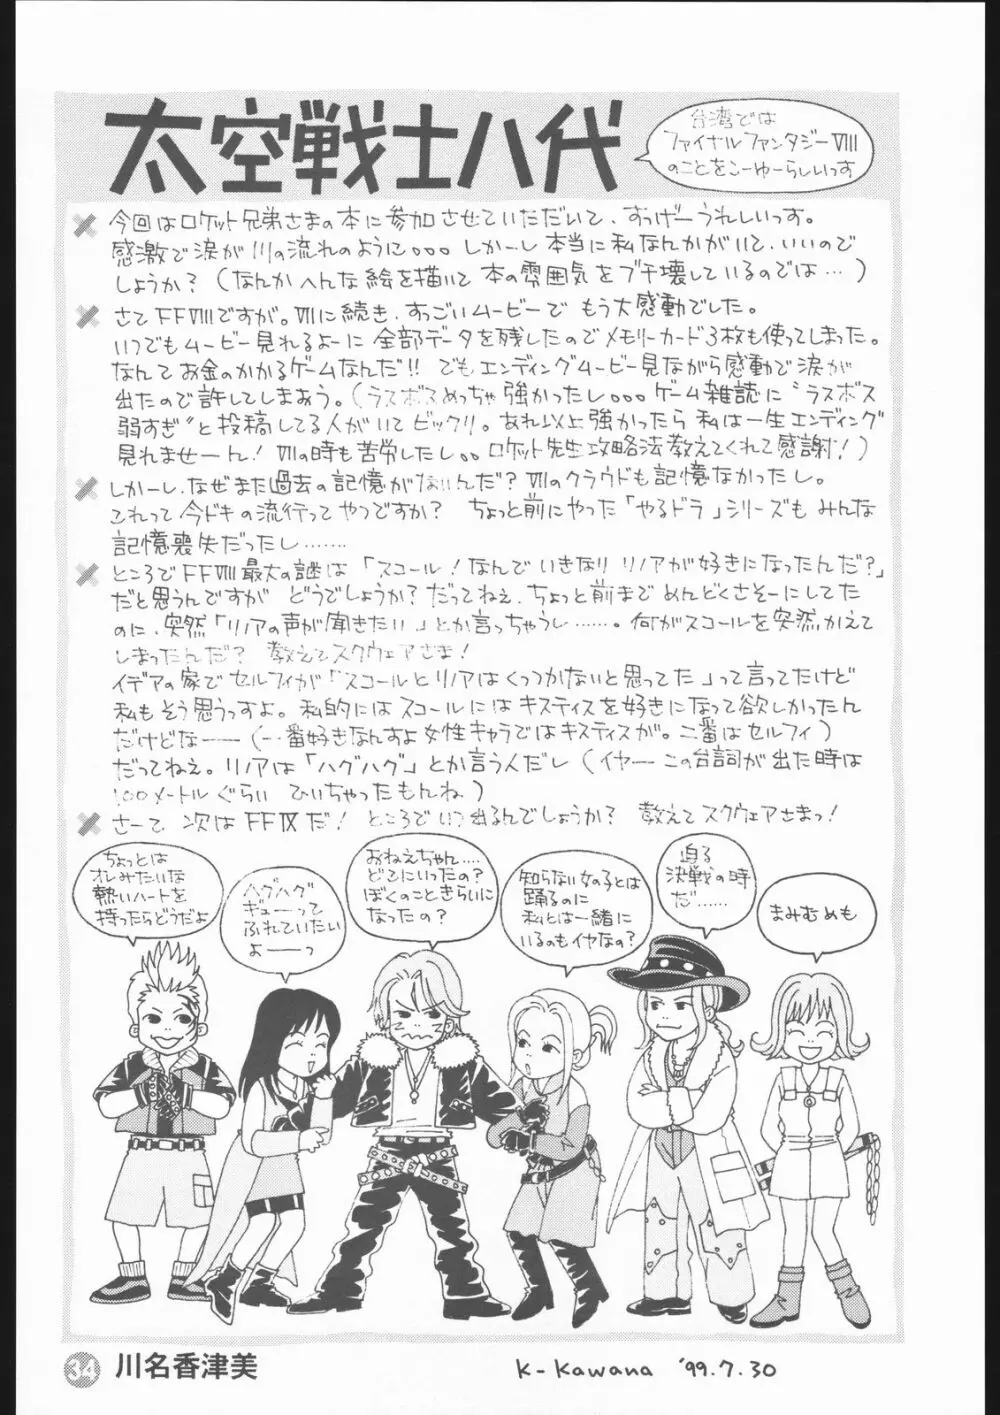 太空戦士八代
台湾では
ファイナルファンタジーⅧ
のことをこーゆーらしいっす
今回はロケット兄弟さまの本に参加させていただいて、すっげーうれしいっす。
感激で涙が川の流れのように。。。しかーし本当に私なんかがいて、いいので
しょうか?(なんかへんな絵を描いて本の雰囲気をブチ壊しているのでは…)
さてFFⅧですが。Ⅶに続き、すっごいムービーでもう大感動でした。
いつでもムービー見れるよーに全部データを残したのでメモリーカード3枚も使ってしまった。
なんてお金のかかるゲームなんだ!!でもエンディングムービー見ながら感動で涙が
出たので許してしまおう。(ラスボスめっちゃ強かったし。。。ゲーム雑誌に"ラスボス
弱すぎ"と投稿してる人がいてビックリ。あれ以上強かったら私は一生エンディング
見れませーん!Ⅶの時も苦労したし。。ロケット先生攻略法教えてくれて感謝!)
しかーし、なぜまた過去の記憶がないんだ?Ⅶのクラウドも記憶なかったし。
これって今ドキの流行ってやつですか? ちょっと前にやった「やるドラ」シリーズもみんな
記憶喪失だったし……
ところでFFⅧ最大の謎は「スコール!なんでいきなりリノアが好きになったんだ?」
だと思うんですがどうでしょうか?だってねぇ、ちょっと前までめんどくさそーにしてた
のに、突然「リノアの声が聞きたい」とか言っちゃうし……。何がスコールを突然かえて
しまったんだ? 教えてスクウェアさま!
イデアの家でセルフィが「スコールとリノアはくっつかないと思ってた」って言ってたけど
私もそう思うっすよ。私的にはスコールにはキスティスを好きになって欲しかったん
だけどなー(一番好きなんすよ女性キャラではキスティスが。二番はセルフィ)
だってねぇ。リノアは「ハグハグ」とか言う人だし(イヤーこの台詞が出た時は
100メートルぐらい ひいちゃったもんね)
さーて、次はFFⅨだ! ところでいつ出るんでしょうか? 教えてスクウェアさまっ!
ちょっとは
オレみたいな
熱いハートを
持ったらどうだよ
ハグハグ
ギューって
ふれていたい
よーっ
おねえちゃん‥‥
どこにいったの?
ぼくのこときらいに
なったの?
知らない女の子とは
踊るのに
私とは一緒に
いるのもイヤなの?
迫る
決戦の時
だ……
まみむめも
34
川名香津美
K-Kawana '99.7.30